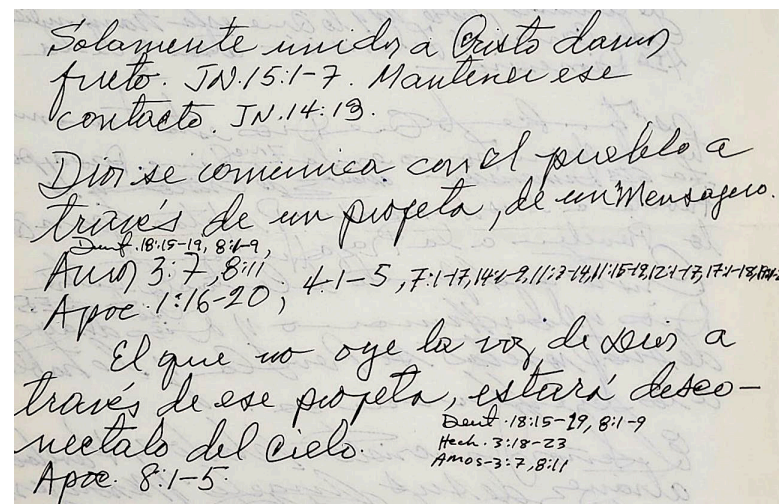 Solamente unidos a Cristo damos
fruto. JN.15:1-7. Mantener ese
contacto. JN.14:13.
Dios se comunica con el pueblo a
través de un profeta, de un Mensagero.
Deut. 18:15-19, 8:1-9,
Amos 3:7, 8:11
Apoc. 1:16-20, 4:1-5, 7:1-17, 14:1-9, 11:15-19, 12:1-17, 17:1-18,
El que no oye la voz de Dios a
través de ese profeta, estará desco-
nectalo del cielo.
Deut. 18:15-19, 8:1-9
Hech. 3:18-23
Amos-3:7, 8:11
Apoc. 8:1-5.